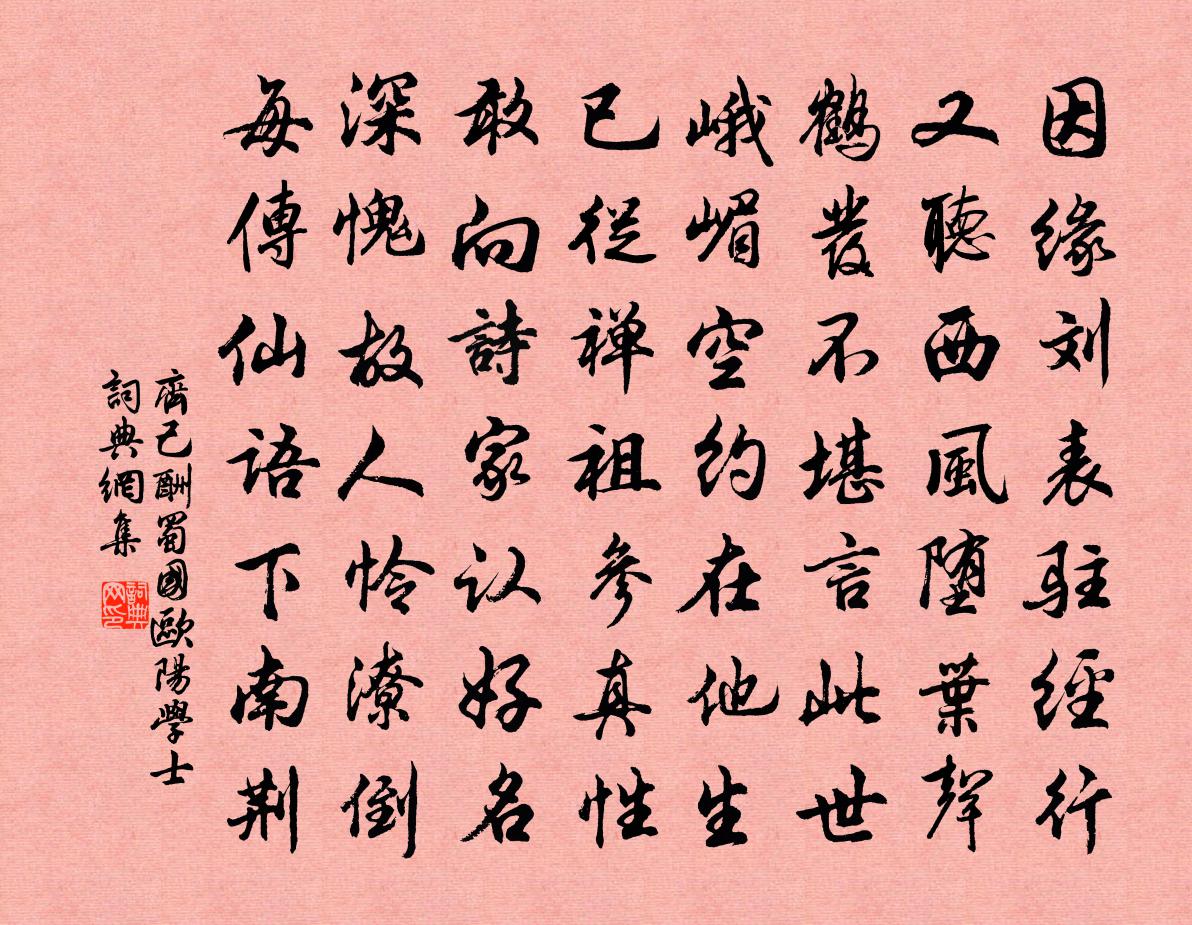 因缘刘表驻經行
又聽西風堕葉聲
鶴發不堪言此世
峨嵋空约在他生
已從禅祖參真性
敢向詩家认好名
深愧故人怜潦倒
每傳仙语下南荆
齊己酬蜀國歐陽學士
詞典網集
詞典网印